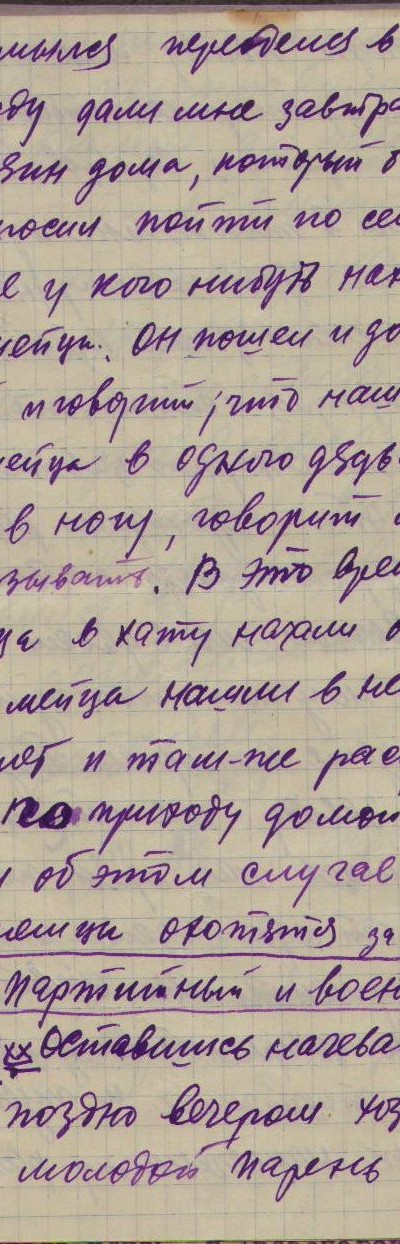 мылся переоделся в
ду дали мне завтра
зин дома, который б
росил пойти по се
е у кого нибуть нах
мейца. Он пошел и до
и говорит, что наш
мейца в одного дядь
в ногу, говорит
зывать. В это врем
ца в хату нахали
мейца нашли в не
лёт и там-же рас
по приходу домой
об этом случае
немцы охотятся за
партийный и воен
хх оставшись начева
поздно вечером хоз
молодой парень